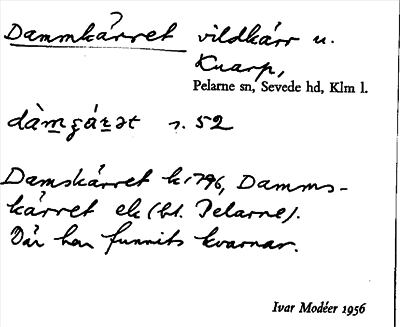 Dammkärret vildkärr u.
Knarp,
Pelarne sn, Sevede hd, Klm l.
dàmçárət s. 52
Damskärret k 1796, Damms-
kärret ek (bl. Pelarne).
Där har funnits kvarnar.
Ivar Modéer 1956